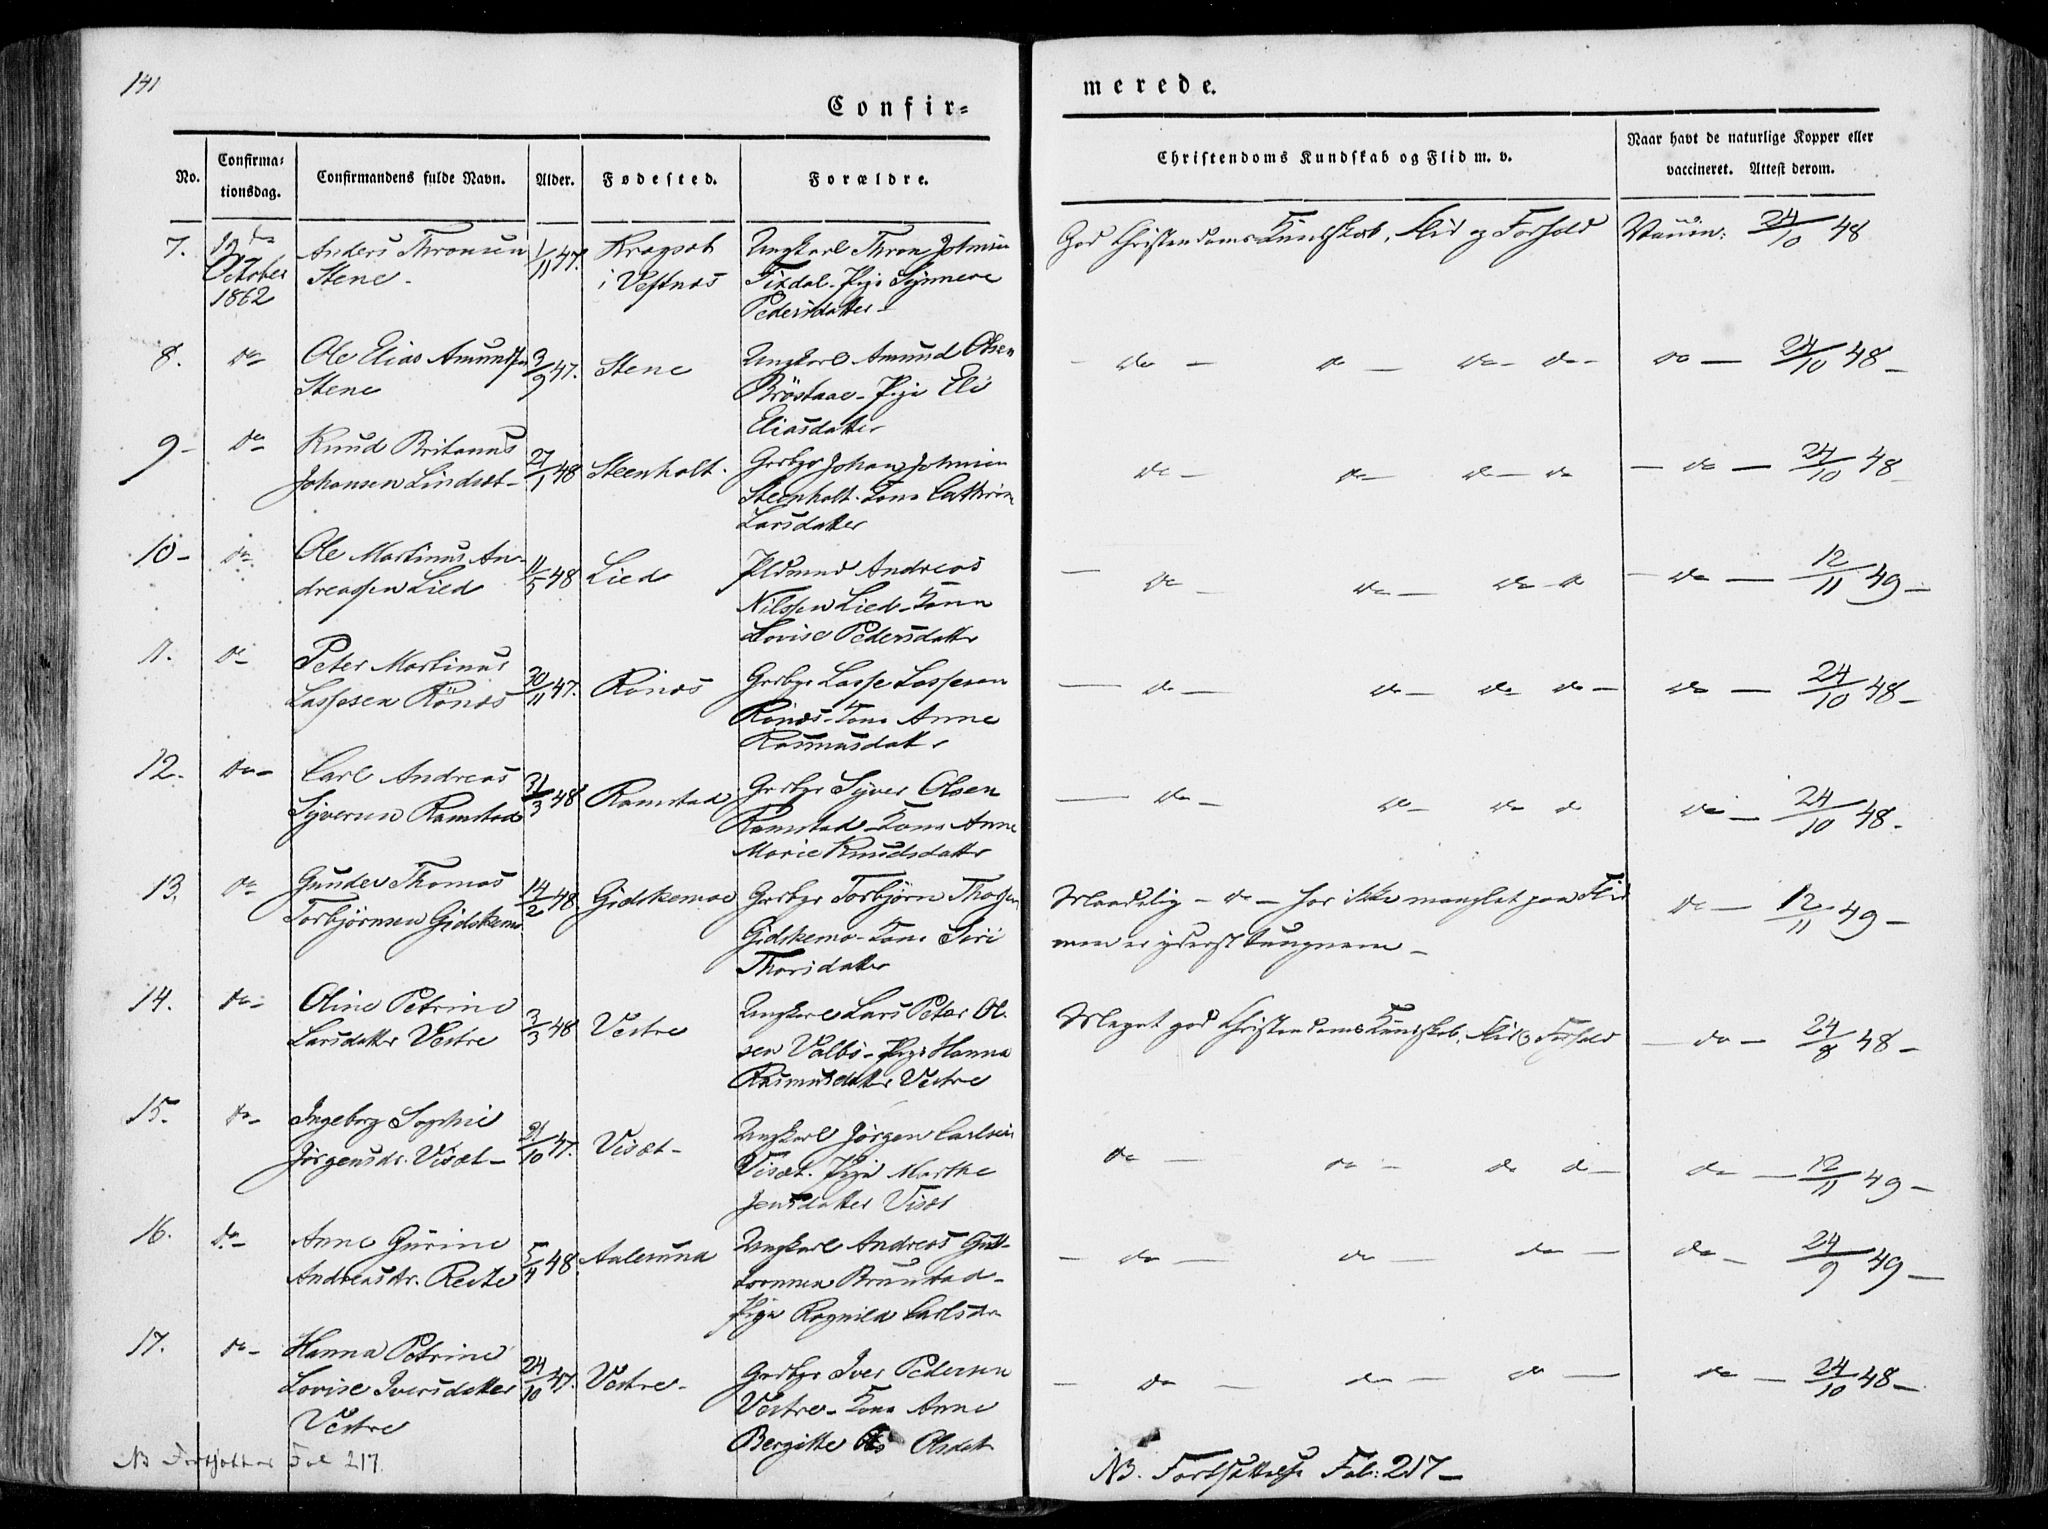 141
Confir-
merede.
No.
Confirma-
tionsdag.
Confirmandens fulde Navn.
Alder.
Fødested.
Forældre.
Christendoms Kundskab og Flid m. v.
Naar havt de naturlige Kopper eller
vaccineret. Attest derom.
7. 12te Anders Thronsen 1/11 47. Kragset Ungkarl Thron Johnsen God Christendoms Kundskab, Flid og Forhold Vaccin: 24/10 48
October Stene - i Vestnæs Fixdal - Pige Synnøve
1862 Pedersdatter -
8. do Ole Elias Amundsen 3/9 47. Stene Ungkarl Amund Olsen - do - do - do - do - do - 24/10 48 -
Stene Brøstaae - Pige Eli
Eliasdatter
9 - do Knud Britanus 27/1 48 Steenholt. Grbgr Johan Johnsen do - do - do - do - do - 24/10 48 -
Johansen Lindset - Steenholt. Kone Cathrine
Larsdatter
10 - do. Ole Martinus An- 11/5 48 Lied Andreas - do - do - do do - do - 12/11 49 -
dreassen Lied Nilssen Lied - Kone
Lovise Pedersdatter
11. do - Peter Martinus 30/11 47. Rønæs Grbgr Lasse Lassesen - do - do - do do - do - 24/10 48 -
Lassesen Rönæs Rönæs - Kone Anne
Rasmusdatter
12. do - Carl Andreas 31/3 48 Ramstad Grbgr Syver Olsen - do - do - do do do - 24/10 48 -
Syversen Ramstad Ramstad - Kone Anne
Marie Knudsdatter
13. do Gunder Thomas 14/2 48. Gidskemoe Grbgr Torbjørn Maadelig - do - har ikke manglet paa Flid do - 12/11 49 -
Torbjörnsen Gidskemo Gidskemo - Kone Siri men er yderst tungnem -
Thorsdatter
14. do - Oline Petrine 3/3 48 Vestre Ungkarl Lars Peter Ol- Meget god Christendoms Kundskab, Flid og Forhold - do - 24/8 48 -
Larsdatter Vestre sen Valbø - Pige Hanna
Rasmusdatter Vestre
15. do - Ingeborg Sophie 21/10 47. Visæt - Ungkarl Jørgen Carlsen do - do - do do - do - 12/11 49 -
Jørgensdr. Visæt - Visæt. Pige Marthe
Jensdatter Visæt
16. do - Anne Gurine 5/4 48 Aalesund Ungkarl Andreas Gut- - do - do - do - do - 24/9 49 -
Andreasdr. Reite tormsen Brunstad -
Pige Ragnild Carlsdr
17. do - Hanna Petrine 24/10 47. Vestre - Grbgr Iver Pedersen - do - do - do - do - 24/10 48 -
Lovise Iversdatter Vestre - Kone Anne
Vestre Bergitte Olsdat
NB Fortsættes Fol 217.
NB. Fortsættelse Fol: 217 -